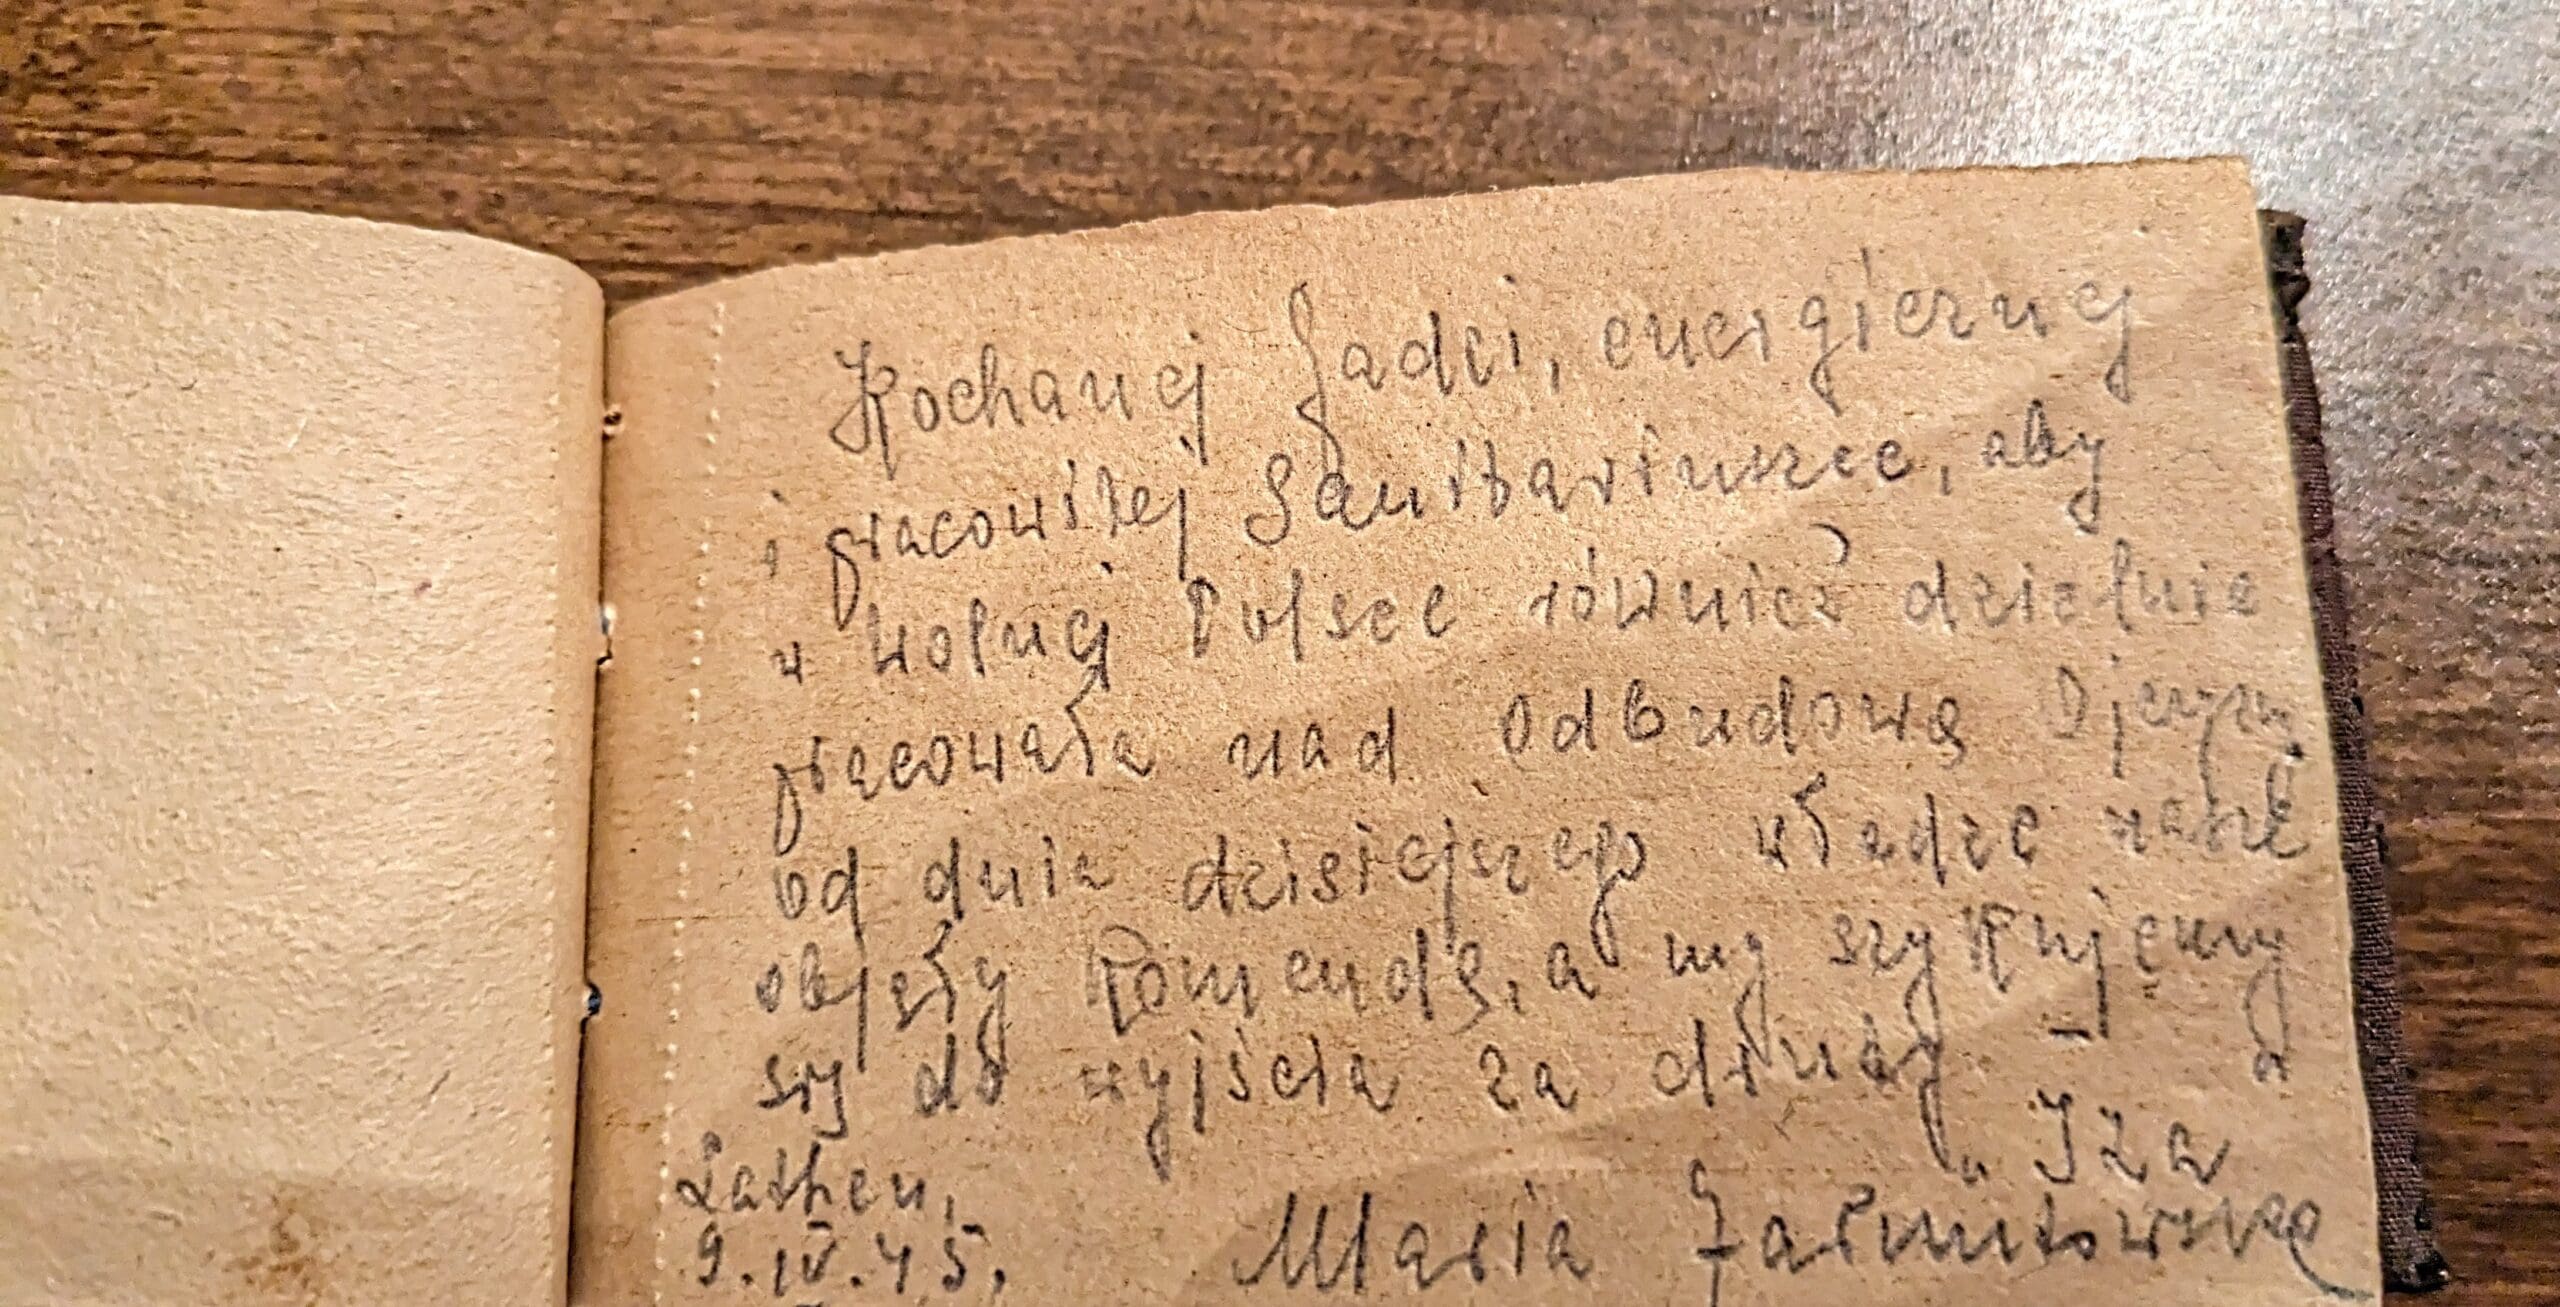 Kochanej Jadzi, energicznej
i pracowitej Sanitariuszce, aby
w Wolnej Polsce również dzielnie
pracowała nad odbudową Ojczyzny.
od dnia dzisiejszego władze nasze
objęły Komendę, a my szykujemy
się do wyjścia za druty. –
"Iza"
Lathen,
9.IV.45. Maria